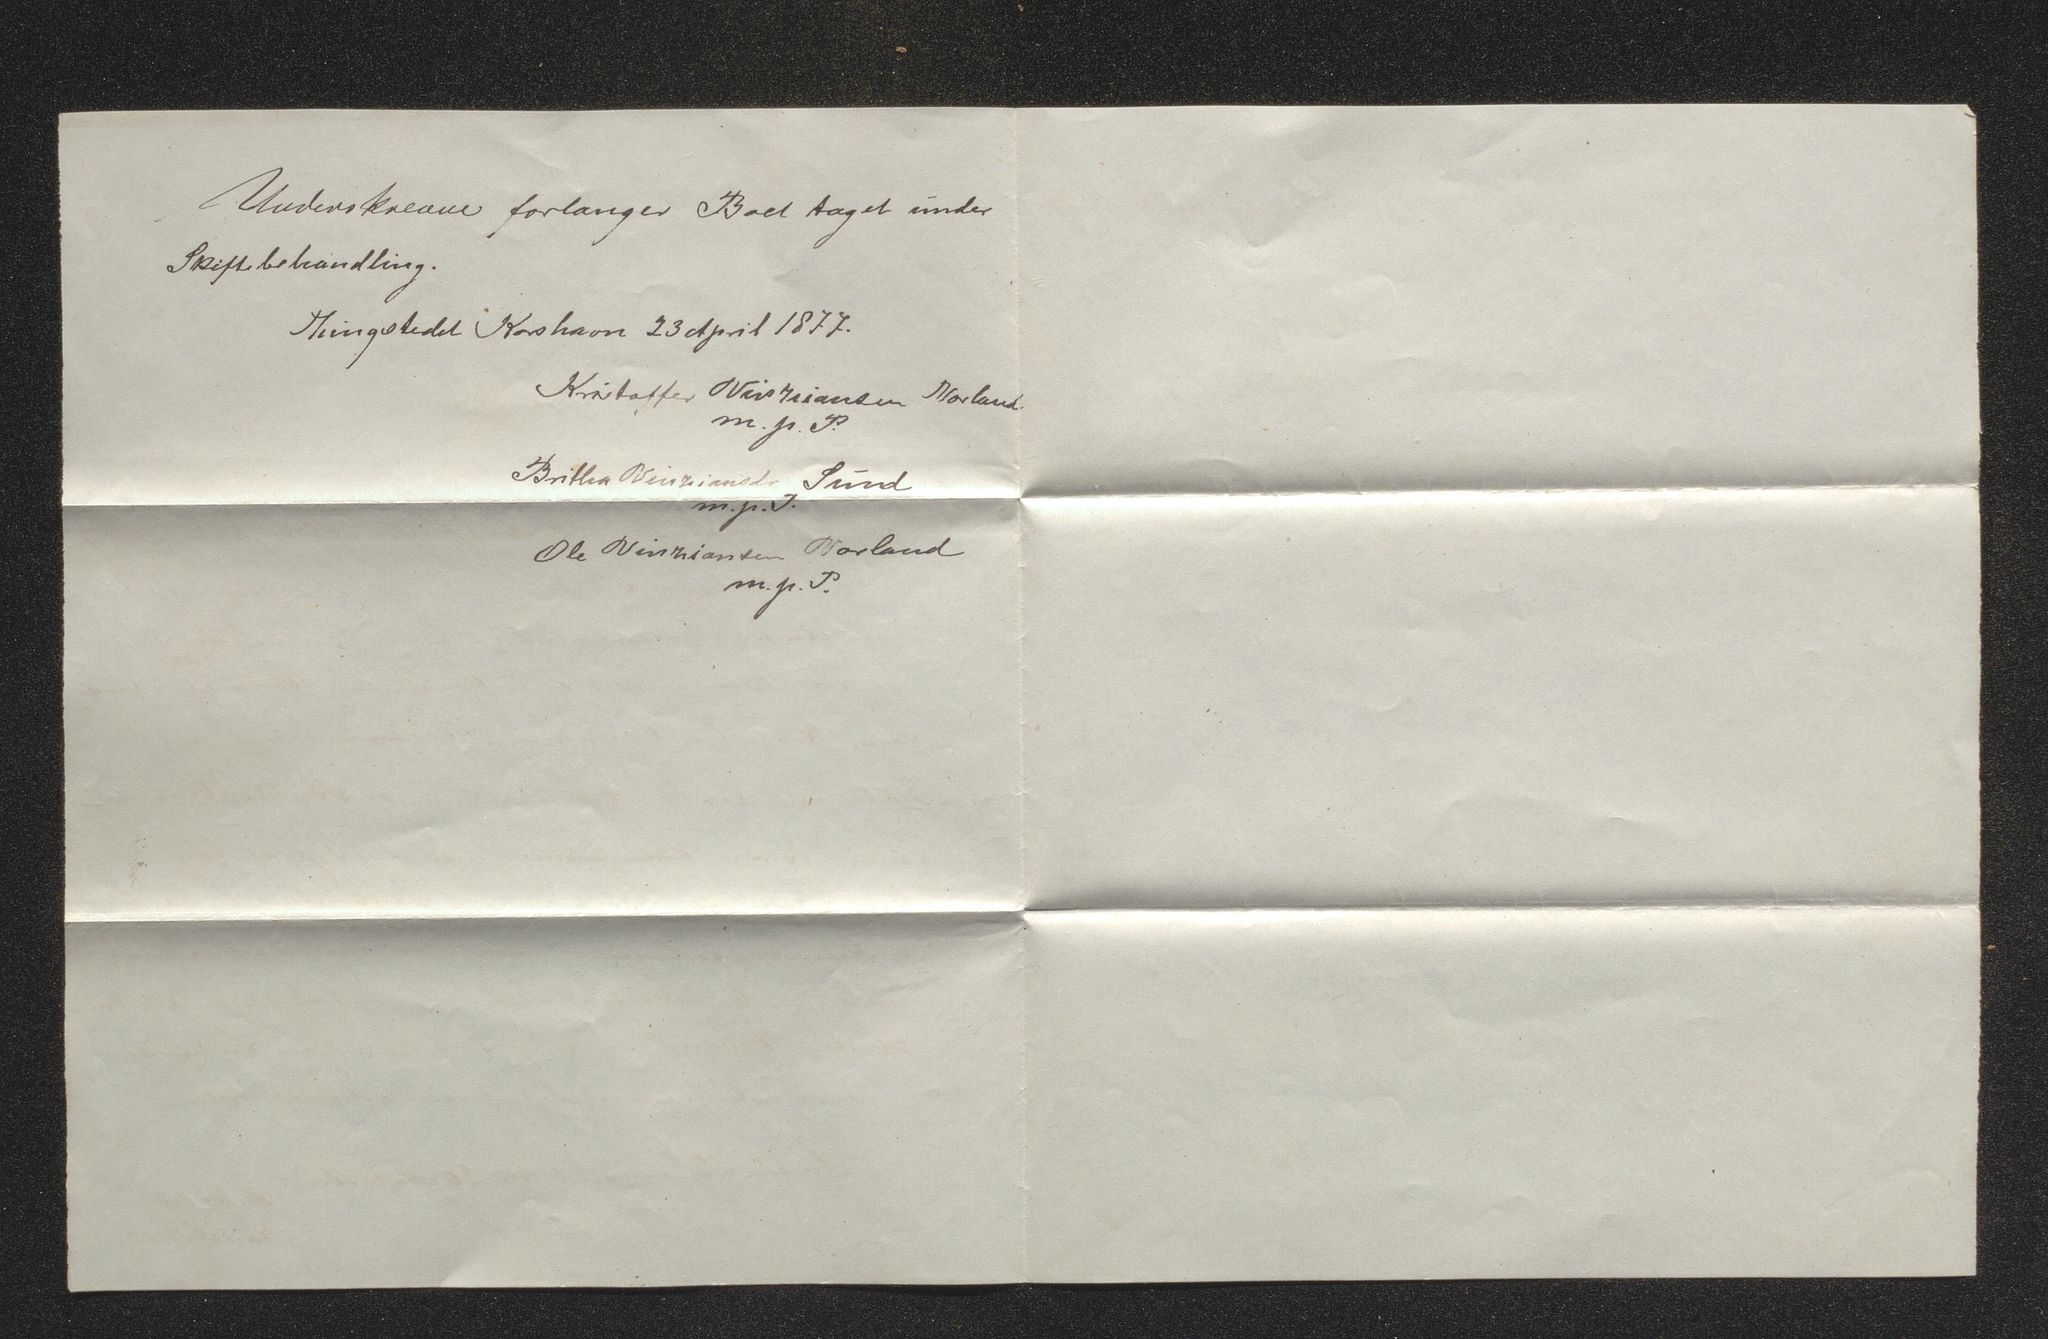 Underskrevne forlanger Boet taget under
Skiftebehandling.
Thingstedet Korshavn 23 April 1877.
Kristoffer Ninriansen Norland
m. p. P.
Britha Ninriansdr Sund
m. p. P.
Ole Ninriansen Norland
m. p. P.